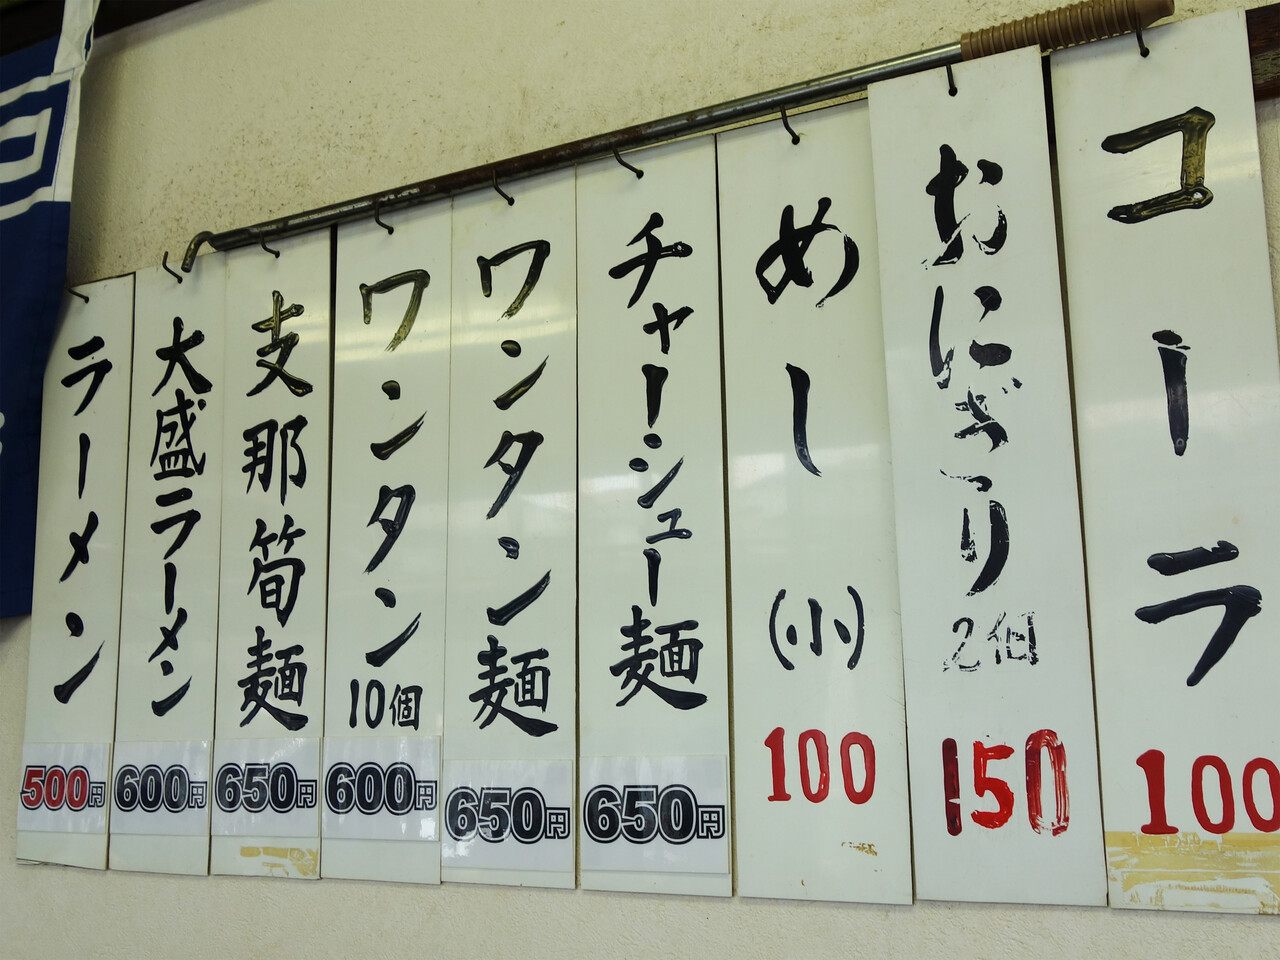 コーラ
100
おにぎり
2個
150
めし
(小)
100
チャーシュー麺
650円
ワンタン麺
650円
ワンタン
10個
600円
支那筍麺
650円
大盛ラーメン
600円
ラーメン
500円